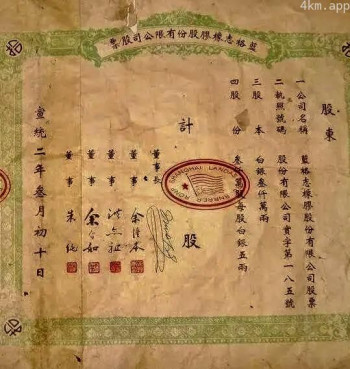 4km.app
藍格志橡膠股份有限公司股票
股東
一公司名稱 藍格志橡膠股份有限公司股票
二執照號碼 股份有限公司實字第一八五號
三股本 白銀叁仟萬兩
四股份 萬股每股白銀五兩
計 股
SHANGHAI LANGKAT
董事長
董事
董事
董事
宣統二年叁月初十日